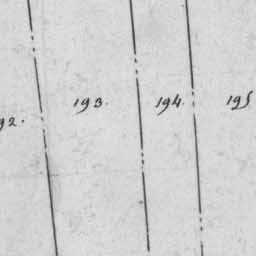 193.
194.
195
92.